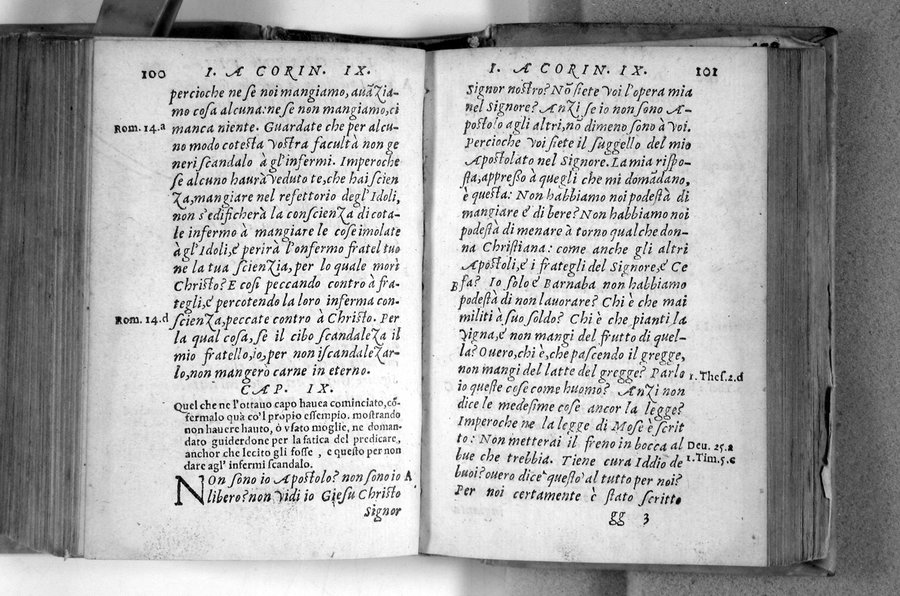 100 I. A CORIN. IX.
percioche ne se noi mangiamo, auãZia-
mo cosa alcuna: ne se non mangiamo, ci
Rom. 14.a manca niente. Guardate che per alcu-
no modo cotesta vostra facultà non ge
neri scandalo à gl'infermi. Imperoche
se alcuno haurà veduto te, che hai scien
Za, mangiare nel refettorio degl'Idoli,
non s'edificherà la conscienZa di cota-
le infermo à mangiare le cose imolate
à gl'Idoli, e perirà l'onfermo fratel tuo
ne la tua scienZia, per lo quale morì
Christo? E così peccando contro à fra-
tegli, e percotendo la loro inferma con-
Rom. 14.d scienZa, peccate contro à Christo. Per
la qual cosa, se il cibo scandaleZa il
mio fratello, io, per non iscandaleZar-
lo, non mangerò carne in eterno.
CAP. IX.
Quel che ne l'ottauo capo hauea cominciato, cõ-
fermalo quà co'l propio essempio. mostrando
non hauere hauto, ò vsato moglie, ne doman-
dato guiderdone per la fatica del predicare,
anchor che lecito gli fosse, e questo per non
dare agl'infermi scandalo.
NOn sono io Apostolo? non sono io A
libero? non vidi io Giesu Christo
Signor
I. A CORIN. IX. 101
Signor nostro? Nõ siete voi l'opera mia
nel Signore? AnZi se io non sono A-
postolo agli altri, nõ dimeno sono à voi.
Percioche voi siete il suggello del mio
Apostolato nel Signore. La mia rispo-
sta, appresso à quegli che mi domãdano,
è questa: Non habbiamo noi podestà di
mangiare e di bere? Non habbiamo noi
podestà di menare à torno qualche don-
na Christiana: come anche gli altri
Apostoli, e i frategli del Signore, e Ce
B fa? Io solo e Barnaba non habbiamo
podestà di non lauorare? Chi è che mai
militi à suo soldo? Chi è che pianti la
vigna, e non mangi del frutto di quel-
la? Ouero, chi è, che pascendo il gregge,
non mangi del latte del gregge? Parlo 1. Thes. 2.d
io queste cose come huomo? AnZi non
dice le medesime cose ancor la legge?
Imperoche ne la legge di Mose è scrit
to: Non metterai il freno in bocca al Deu. 25.a
bue che trebbia. Tiene cura Iddio de 1. Tim. 5.c
buoi? ouero dice questo al tutto per noi?
Per noi certamente è stato scritto
gg 3